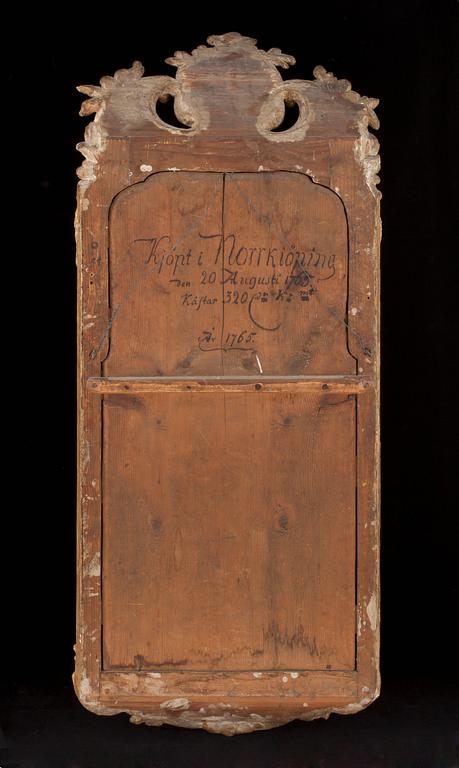 Kjöpt i Norrkiöping
Den 20 Augusti 1765
Kåstar 320
År 1765.